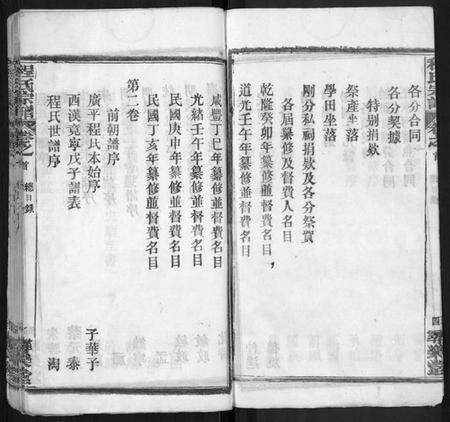 各分合同
各分契據
特別捐欵
祭產坐落
學田坐落
剛分私祠捐欵及各分祭賞
各屆纂修及督費人名目
乾隆癸卯年纂修並督費名目
道光壬午年纂修並督費名目
咸豐丁巳年纂修並督費名目
光緒壬午年纂修並督費名目
民國庚申年纂修並督費名目
民國丁亥年纂修並督費名目
第二卷
前朝譜序
廣平程氏本始序 子華子
西漢竟寧戊子譜表 泰
程氏世譜序 淘
程氏宗譜 卷之首 總目錄
四